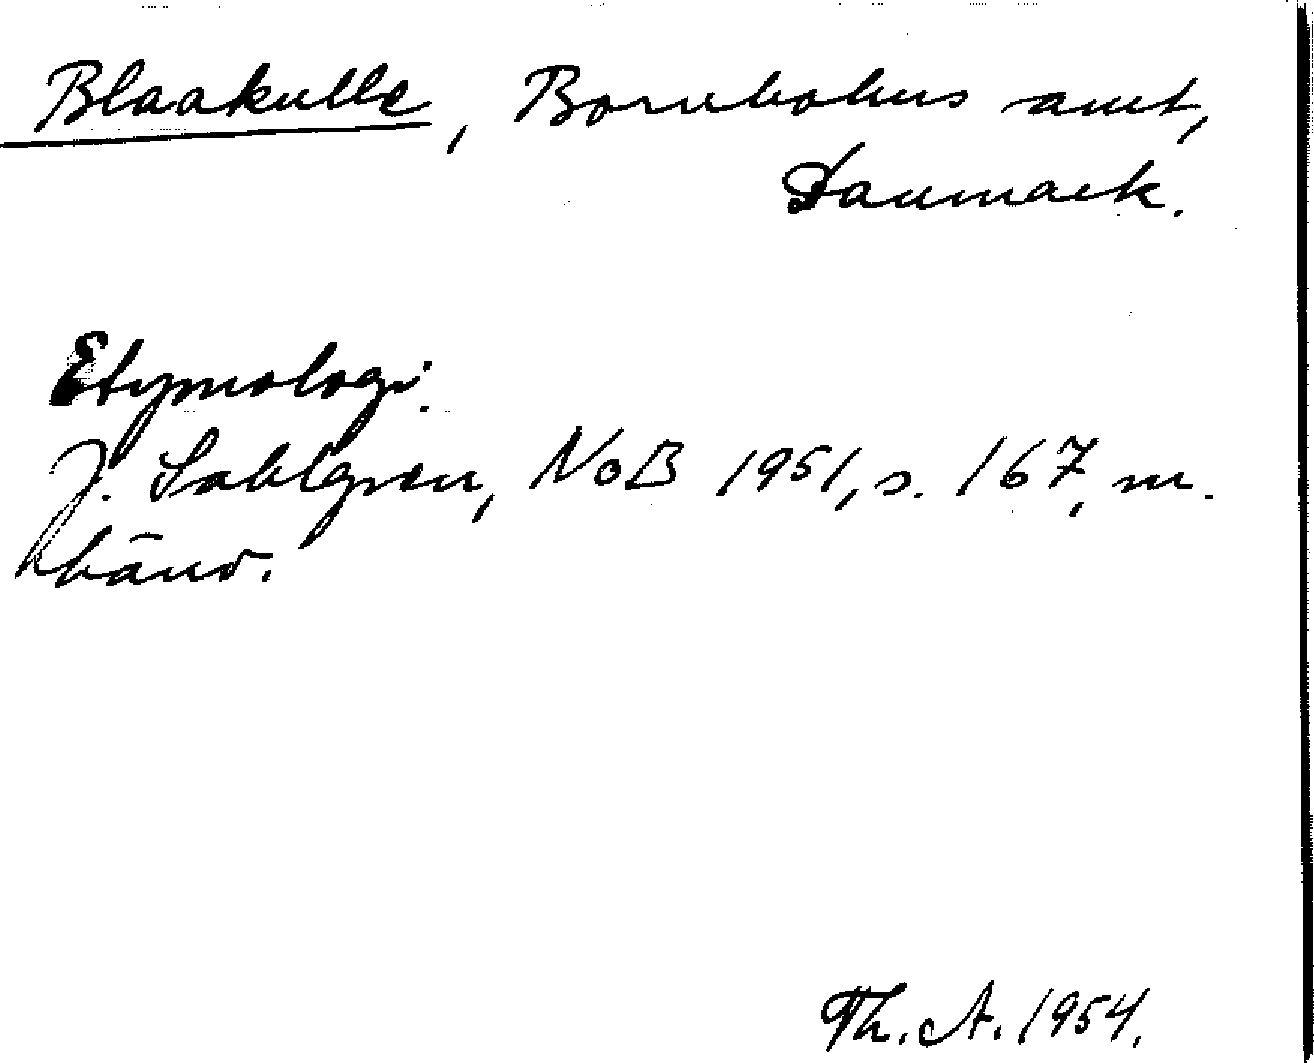 Blaakulle, Bornholms amt,
Danmark.
Etymologi.
J. Sahlgren, NoB 1951, s. 167, m.
hänv.
Th. A. 1954.